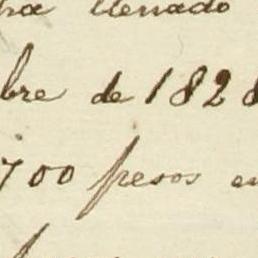 ra llenado
bre de 1828
700 pesos en